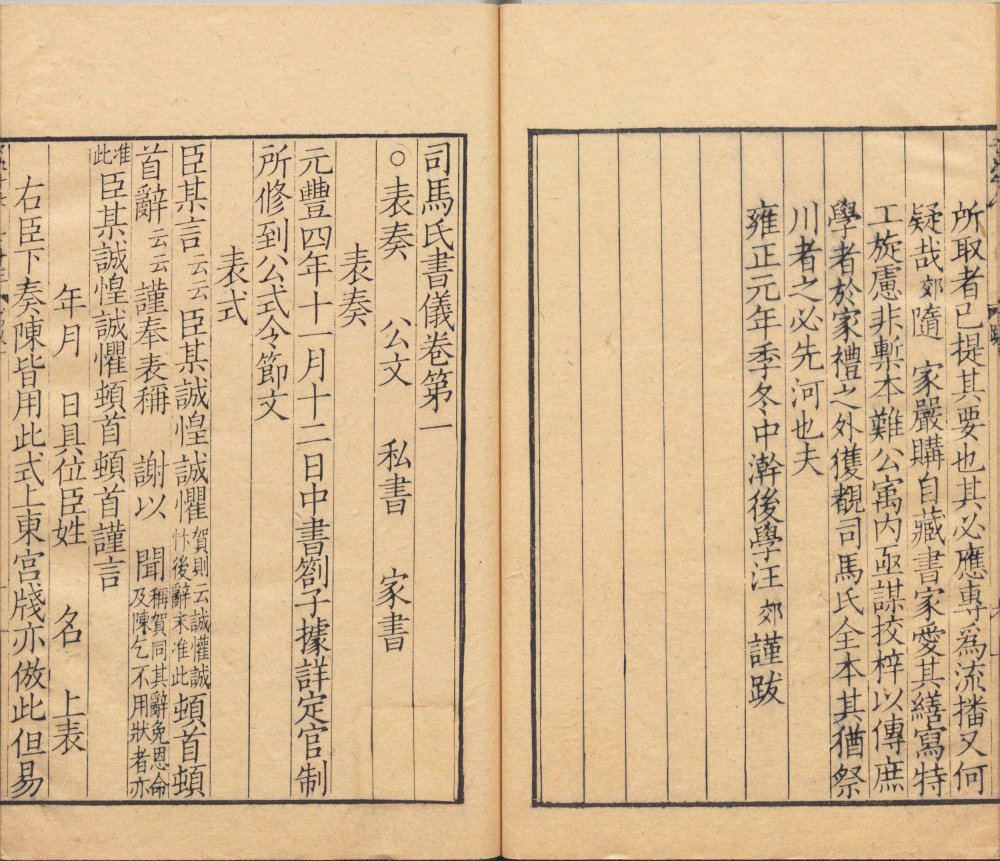 所取者已提其要也其必應專爲流播又何
疑哉郊隨　家嚴購自藏書家愛其繕寫特
工旋慮非槧本難公寓內亟謀挍梓以傳庶
學者於家禮之外獲覩司馬氏全本其猶祭
川者之必先河也夫
雍正元年季冬中澣後學汪郊謹跋
司馬氏書儀卷第一
○表奏　公文　私書　家書
表奏
元豐四年十一月十二日中書劄子據詳定官制
所修到公式令節文
表式
臣某言云云臣某誠惶誠懼賀則云誠懽誠忭後辭末准此頓首頓
首辭云云謹奉表稱　謝以　聞稱賀同其辭免恩命及陳乞不用狀者亦
准此臣某誠惶誠懼頓首頓首謹言
年月　日具位臣姓　名　上表
右臣下奏陳皆用此式上東宮牋亦倣此但易